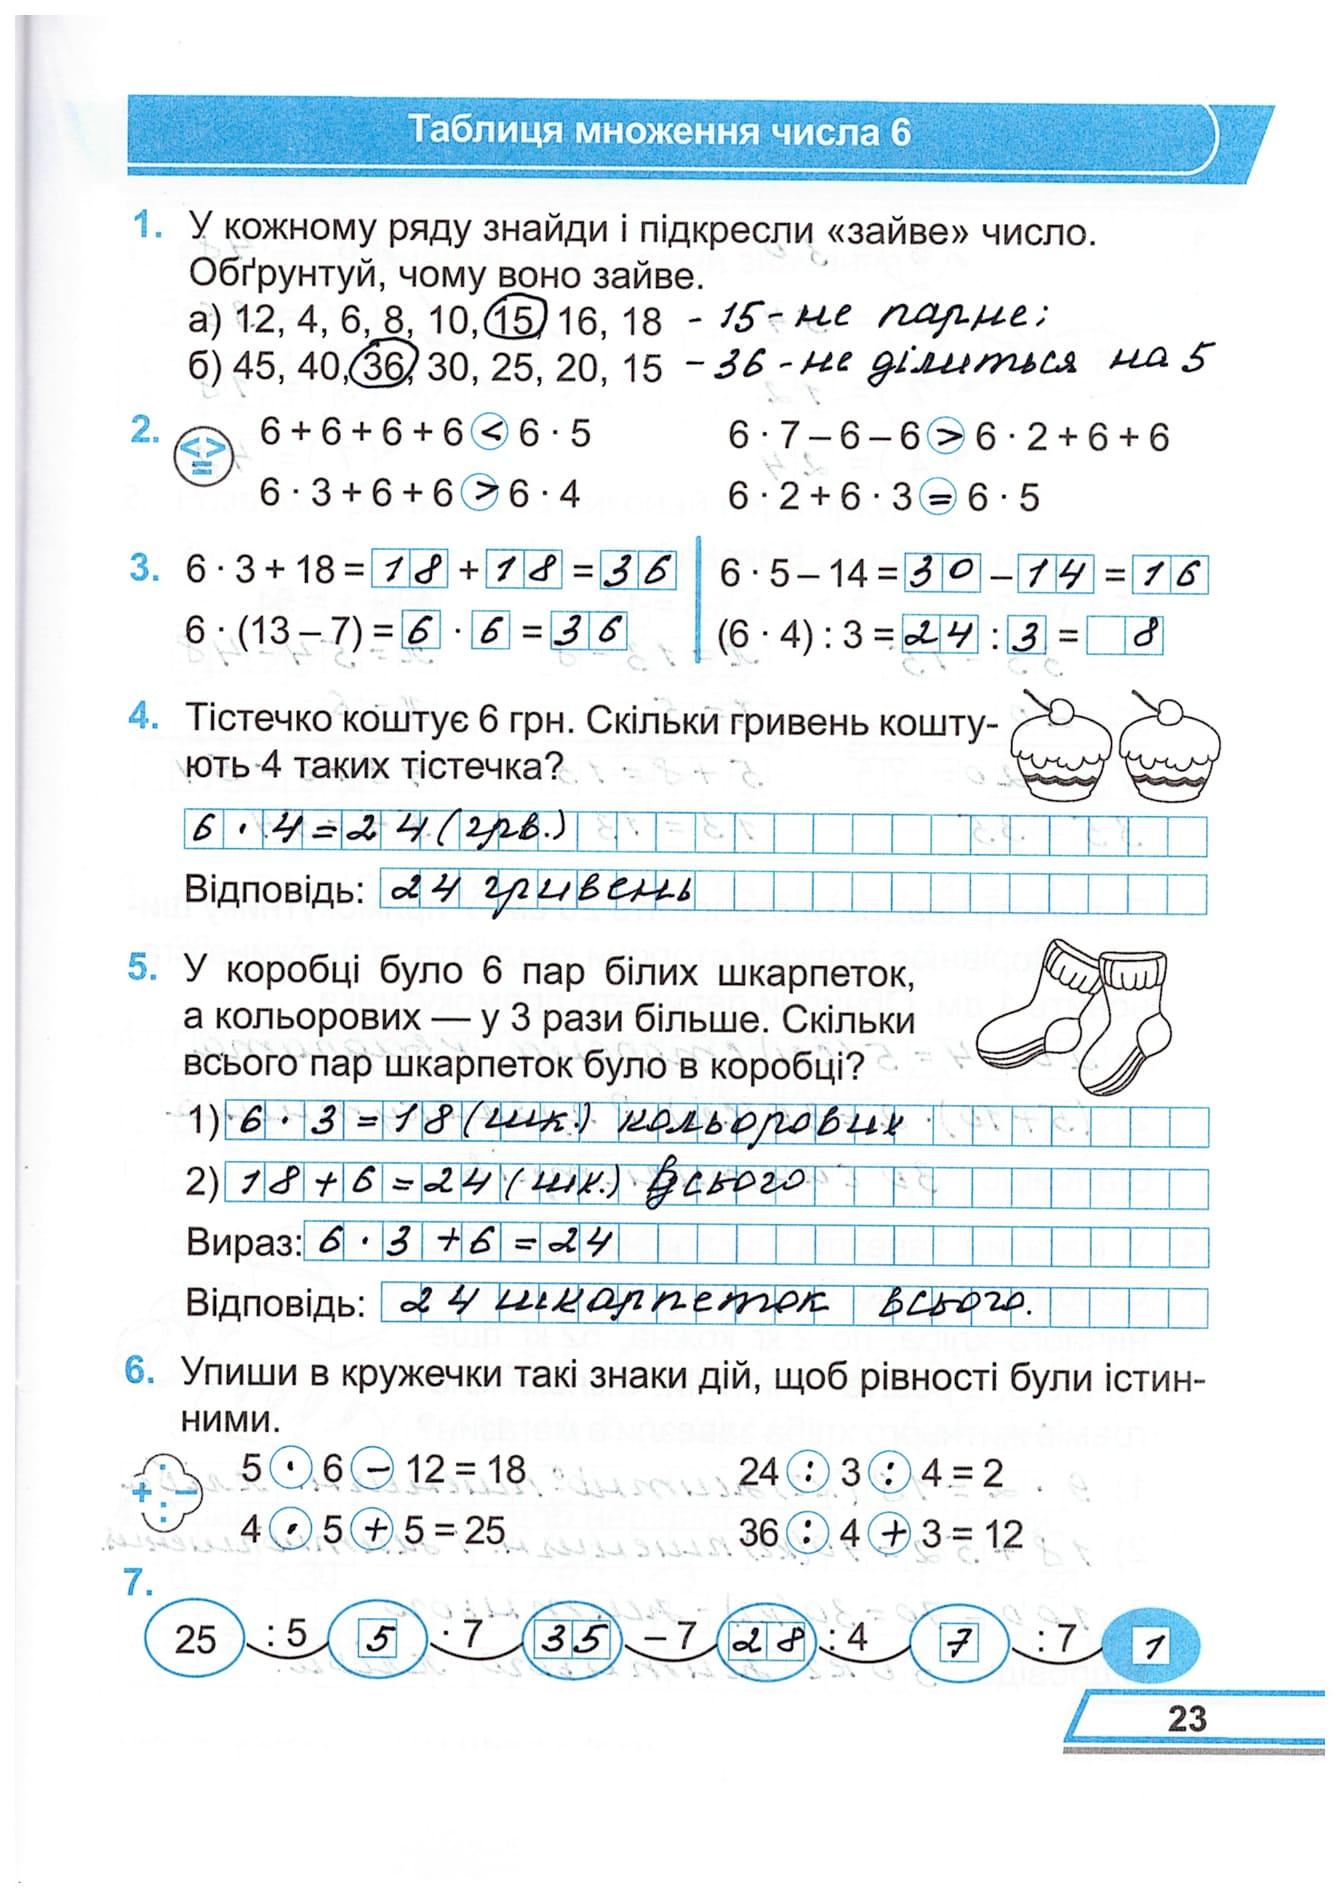 Таблиця множення числа 6
1. У кожному ряду знайди і підкресли «зайве» число.
Обґрунтуй, чому воно зайве.
а) 12, 4, 6, 8, 10, 15, 16, 18 - 15 - не парне;
б) 45, 40, 36, 30, 25, 20, 15 - 36 - не ділиться на 5
2. 6 + 6 + 6 + 6 < 6 · 5 6 · 7 – 6 – 6 > 6 · 2 + 6 + 6
6 · 3 + 6 + 6 > 6 · 4 6 · 2 + 6 · 3 = 6 · 5
3. 6 · 3 + 18 = 18 + 18 = 36 6 · 5 – 14 = 30 – 14 = 16
6 · (13 – 7) = 6 · 6 = 36 (6 · 4) : 3 = 24 : 3 = 8
4. Тістечко коштує 6 грн. Скільки гривень кошту-
ють 4 таких тістечка?
6 · 4 = 24 (грв.)
Відповідь: 24 гривень
5. У коробці було 6 пар білих шкарпеток,
а кольорових — у 3 рази більше. Скільки
всього пар шкарпеток було в коробці?
1) 6 · 3 = 18 (шк.) кольорових
2) 18 + 6 = 24 (шк.) Всього
Вираз: 6 · 3 + 6 = 24
Відповідь: 24 шкарпеток всього.
6. Упиши в кружечки такі знаки дій, щоб рівності були істин-
ними.
5 · 6 – 12 = 18 24 : 3 : 4 = 2
4 · 5 + 5 = 25 36 : 4 + 3 = 12
7.
25 : 5 5 · 7 35 – 7 28 : 4 7 : 7 1
23